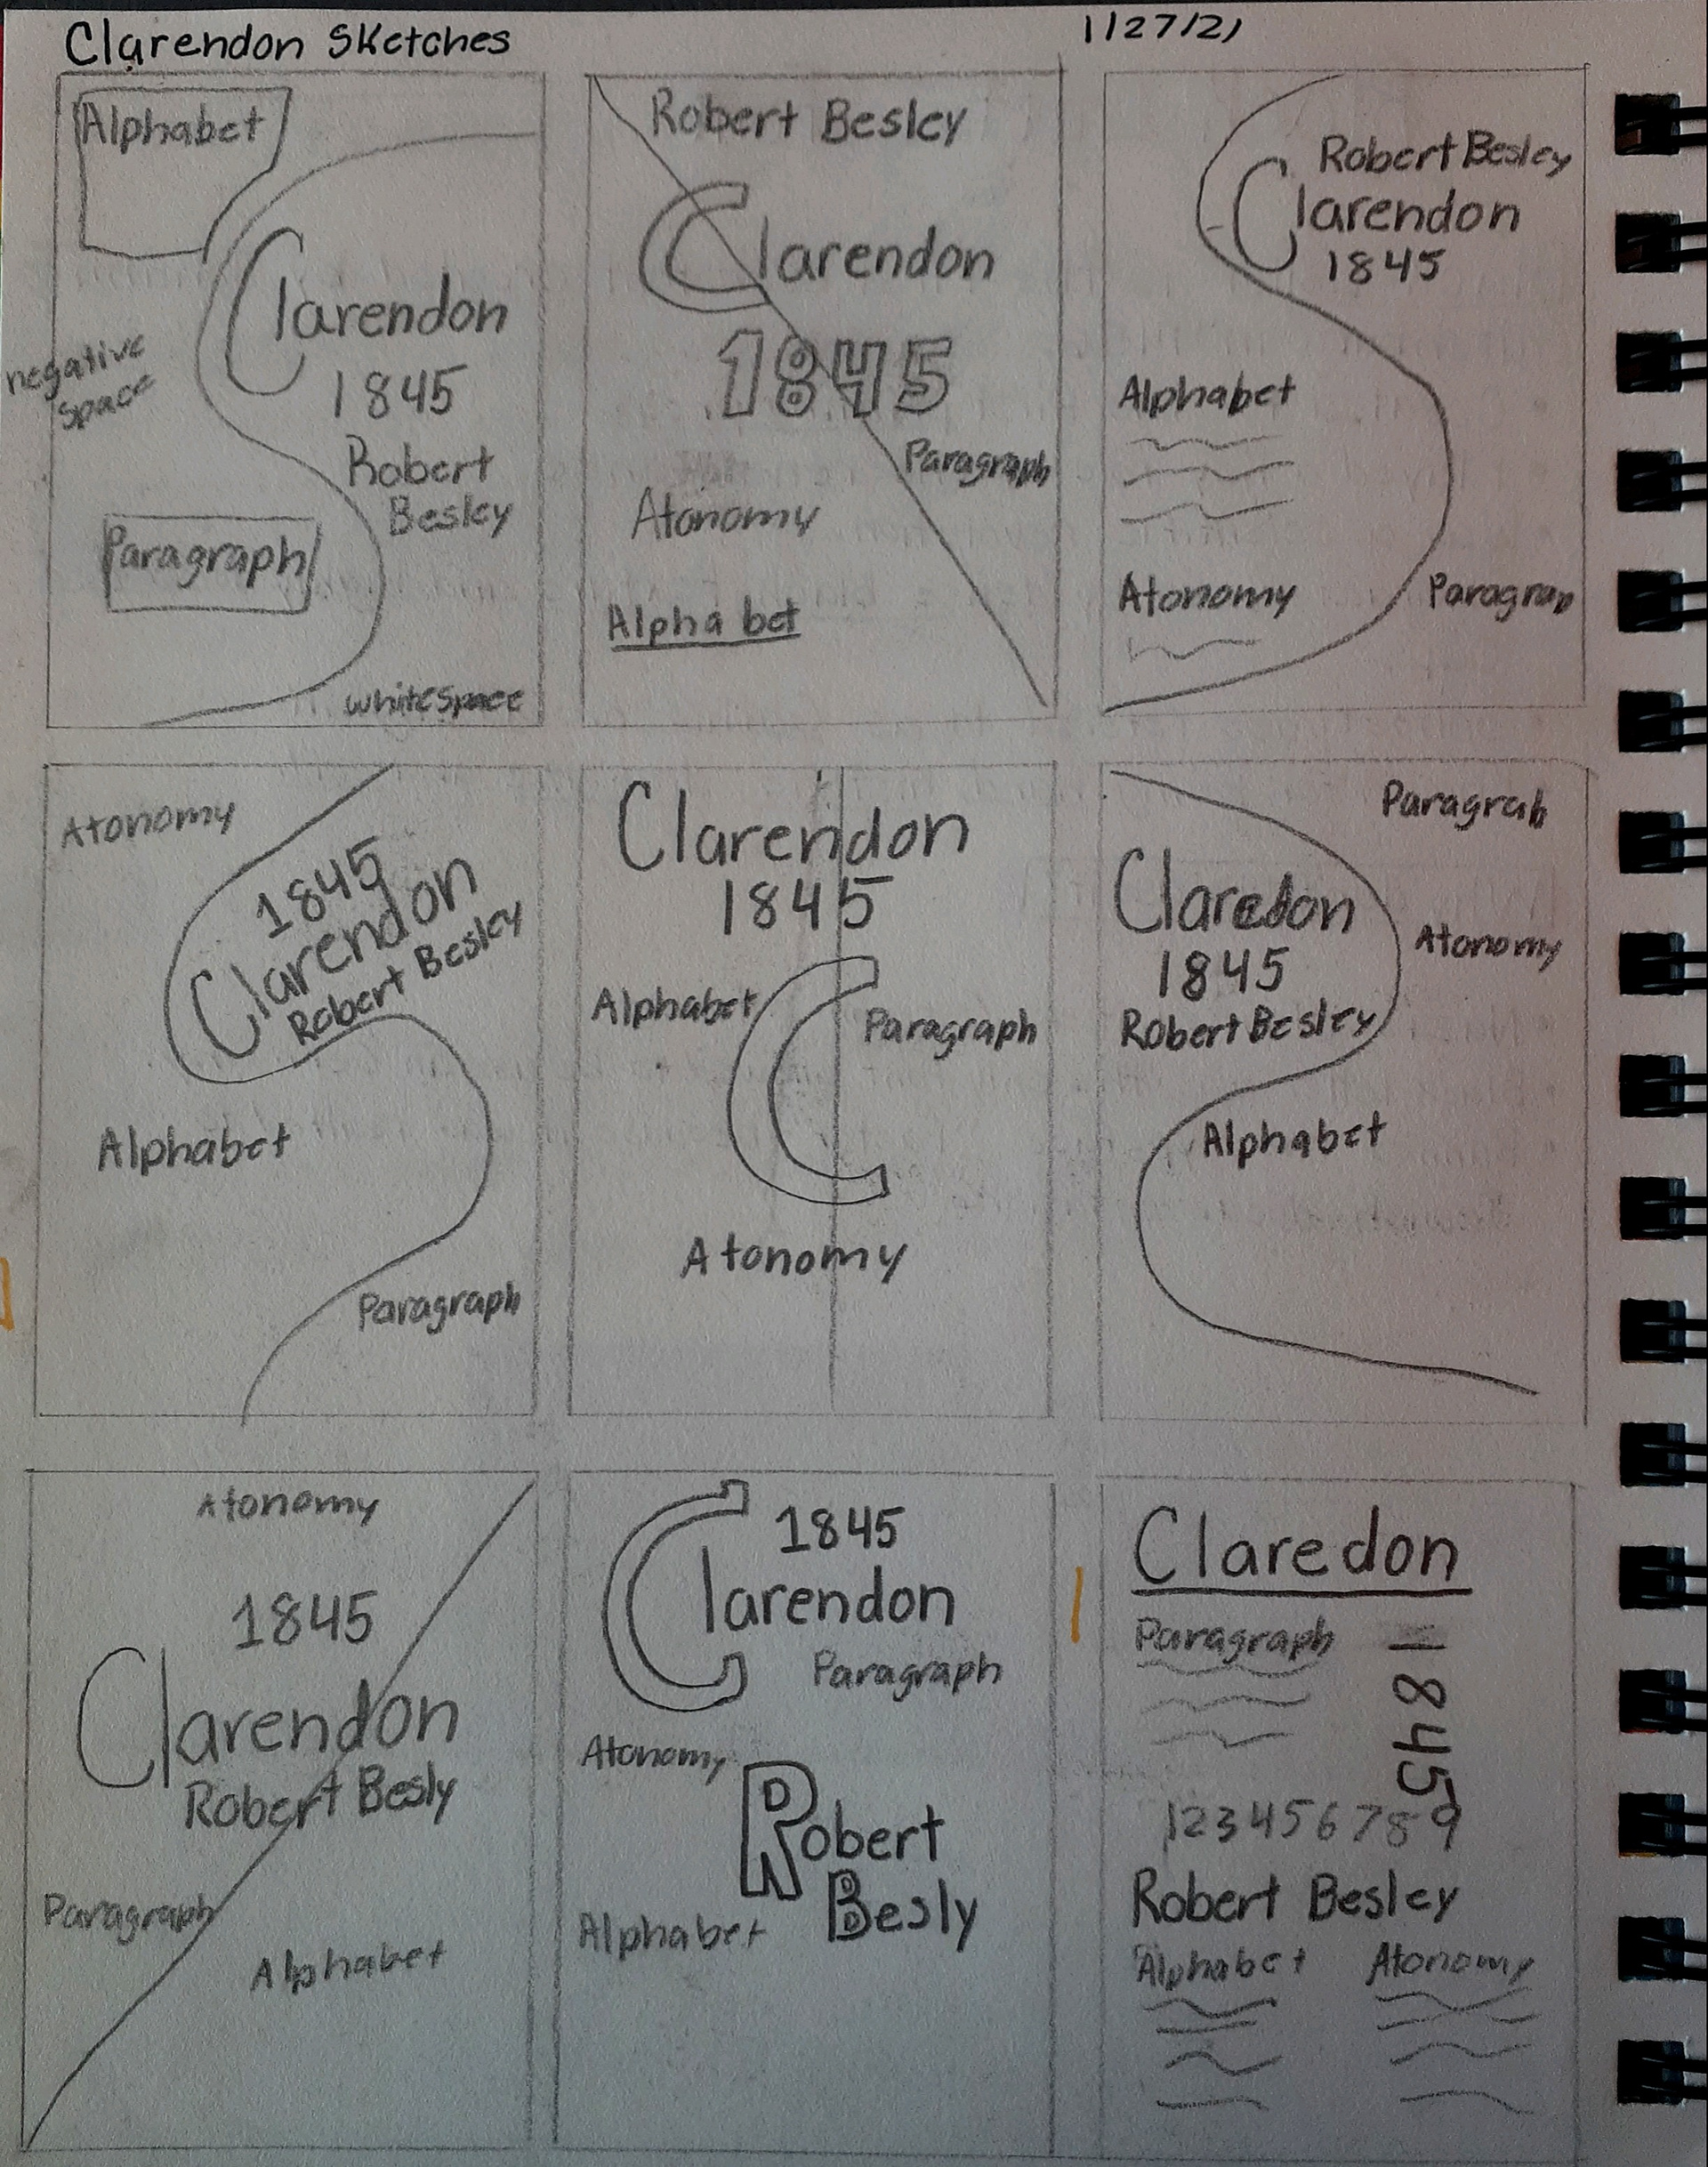 Clarendon Sketches
1/27/21
Alphabet
Clarendon
1845
Robert
Besley
negative
space
Paragraph
whitespace
Robert Besley
Clarendon
1845
Paragraph
Atonomy
Alphabet
Robert Besley
Clarendon
1845
Alphabet
Atonomy
Paragrap
Atonomy
1845
Clarendon
Robert Besley
Alphabet
Paragraph
Clarendon
1845
Alphabet
Paragraph
C
Atonomy
Paragrab
Claredon
1845
Robert Besley
Atonomy
Alphabet
Atonomy
1845
Clarendon
Robert Besly
Paragraph
Alphabet
1845
Clarendon
Paragraph
Atonomy
Robert
Besly
Alphabet
Claredon
Paragraph
1845
123456789
Robert Besley
Alphabet
Atonomy